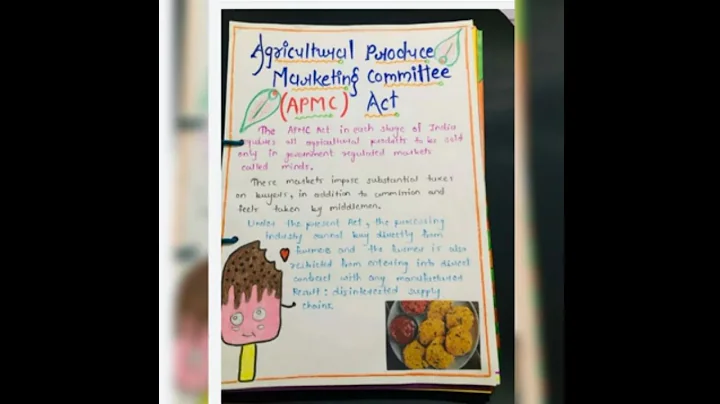 Agricultural Produce
Marketing Committee
(APMC) Act
The APMC Act in each stage of India
requires all agricultural products to be sold
only in government regulated markets
called mindis.
These markets impose substantial taxes
on buyers, in addition to commission and
feels taken by middlemen.
Under the present Act, the processing
industry cannot buy directly from
farmers and the farmer is also
restricted from entering into direct
contract with any manufactured
Result: disinterested supply
chains